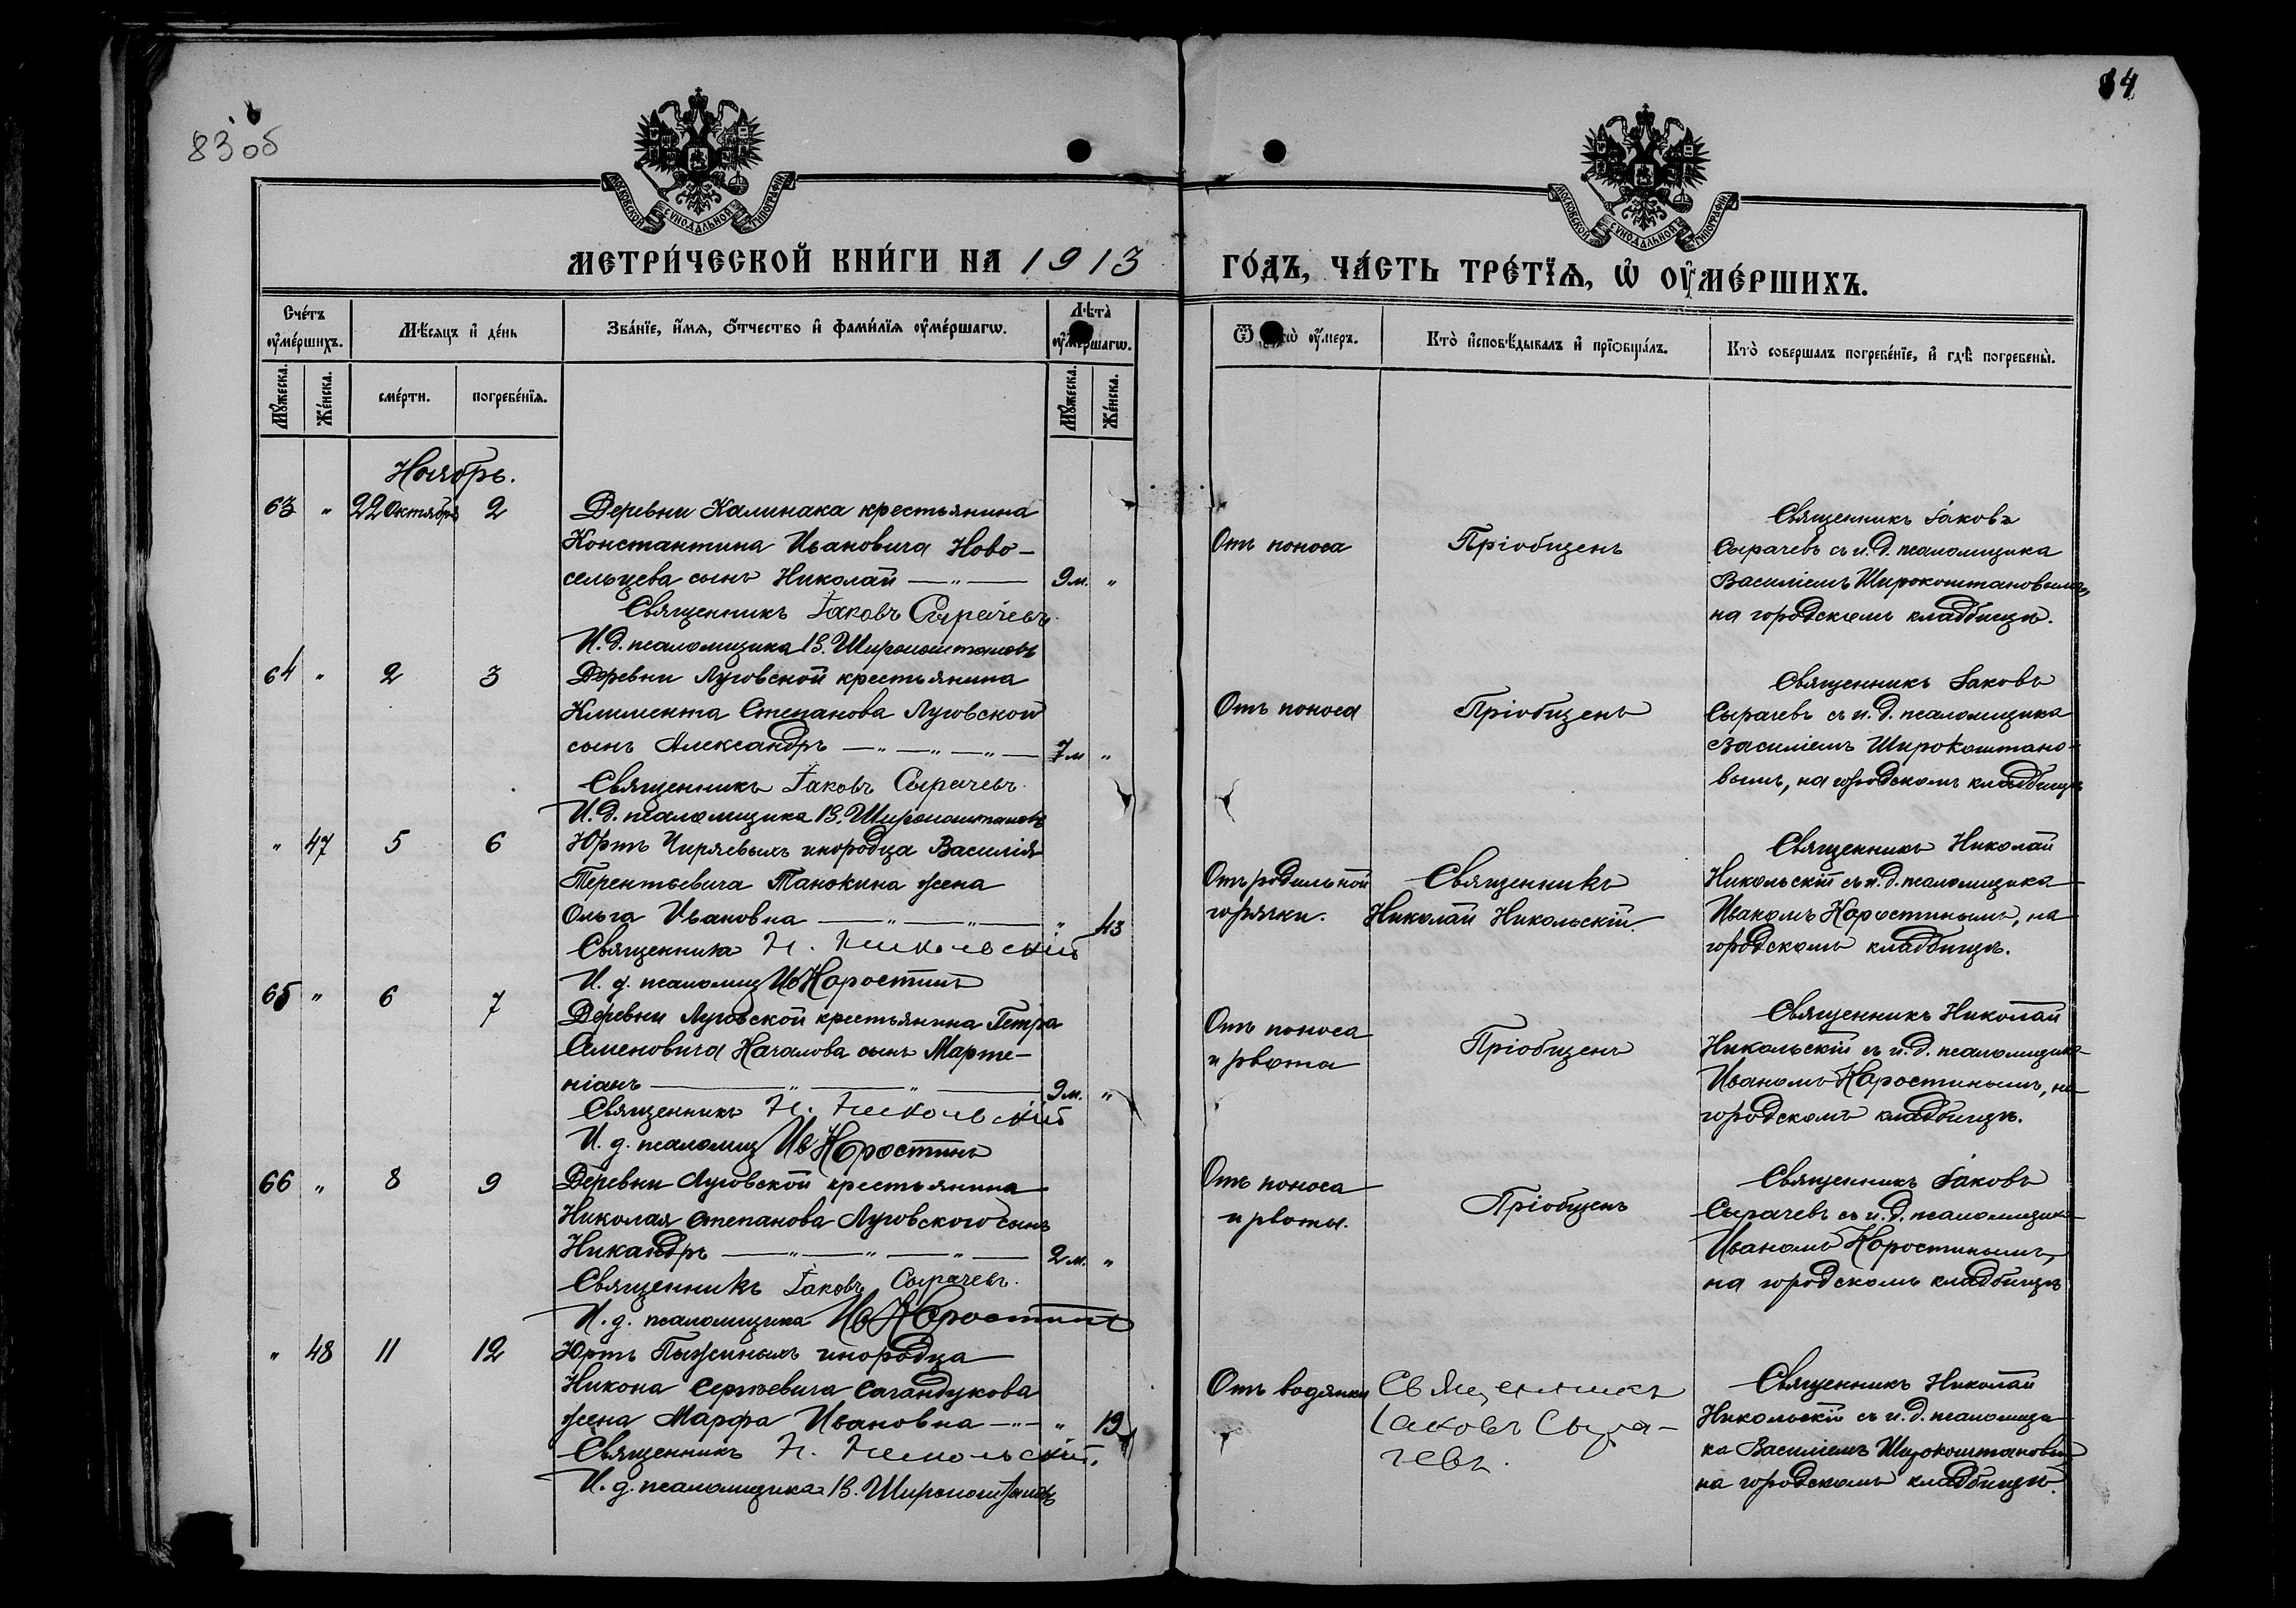 83 об
84
МОСКОВСКОЙ СѴНОДАЛЬНОЙ ТИПОГРАФІИ
МОСКОВСКОЙ СѴНОДАЛЬНОЙ ТИПОГРАФІИ
МЕТРИ́ЧЕСКОЙ КНИ́ГИ НА 1913
ГО́ДЪ, ЧА́СТЬ ТРЕ́ТЇѦ, Ѡ҆ ОУ҆МЕ́РШИХЪ.
Сче́тъ оу҆ме́ршихъ.
Мꙋ́жеска.
Же́нска.
Мѣ́сѧцъ и҆ де́нь
сме́рти.
погребе́нїѧ.
Зва́нїе, и҆́мѧ, ѻ҆́тчество и҆ фами́лїѧ оу҆ме́ршагѡ.
Лѣ́та оу҆ме́ршагѡ.
Мꙋ́жеска.
Же́нска.
Ѿ оу҆́меръ.
Кто̀ и҆сповѣ́дывалъ и҆ прїѡбща́лъ.
Кто̀ соверша́лъ погребе́нїе, и҆ гдѣ̀ погребены̀.
Ноябрь.
63 " 22 Октября 2
Деревни Калинака крестьянина
Константина Ивановича Ново-
сельцева сынъ Николай — " — 9 м. "
Священникъ Іаковъ Сырачевъ
И. д. псаломщика В. Широкоштановъ
Отъ поноса
Пріобщенъ
Священникъ Іаковъ
Сырачевъ съ и. д. псаломщика
Василіемъ Широкоштановымъ,
на городскомъ кладбищѣ.
64 " 2 3
Деревни Луговской крестьянина
Климента Степанова Луговской
сынъ Александръ — " — " — " — 7 м "
Священникъ Іаковъ Сырачевъ.
И. д. псаломщика В. Широкоштановъ
Отъ поноса
Пріобщенъ
Священникъ Іаковъ
Сырачевъ съ и. д. псаломщика
Василіемъ Широкоштано-
вымъ, на городскомъ кладбищѣ
" 47 5 6
Юртъ Чиряевыхъ инородца Василія
Терентьевича Танокина жена
Ольга Ивановна — " — " — " 43
Священникъ Н. Никольскій
И. д. псаломщ Ив Коростинъ
Отъ родильной
горячки.
Священникъ
Николай Никольскій.
Священникъ Николай
Никольскій съ и. д. псаломщика
Иваномъ Коростинымъ, на
городскомъ кладбищѣ.
65 " 6 7
Деревни Луговской крестьянина Петра
Семеновича Качалова сынъ Марти-
ніанъ — " — " — 9 м. "
Священникъ Н. Никольскій
И. д. псаломщ Ив Коростинъ
Отъ поноса
и рвота
Пріобщенъ
Священникъ Николай
Никольскій съ и. д. псаломщика
Иваномъ Коростинымъ, на
городскомъ кладбищѣ.
66 " 8 9
Деревни Луговской крестьянина
Николая Степанова Луговского сынъ
Никандръ — " — " — " — 2 м. "
Священникъ Іаковъ Сырачевъ.
И. д. псаломщика Ив Коростинъ
Отъ поноса
и рвоты.
Пріобщенъ
Священникъ Іаковъ
Сырачевъ съ и. д. псаломщика
Иваномъ Коростинымъ,
на городскомъ кладбищѣ
" 48 11 12
Юртъ Пыжиныхъ инородца
Никона Сергѣевича Сагандукова
жена Марфа Ивановна — " — " 19
Священникъ Н. Никольскій.
И. д. псаломщика В. Широкоштановъ
Отъ водянки
Священникъ
Іаковъ Сыра-
чевъ.
Священникъ Николай
Никольскій съ и. д. псаломщи-
ка Василіемъ Широкоштановым
на городскомъ кладбищѣ.